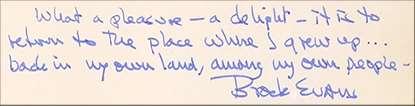 What a pleasure – a delight – it is to
return to the place where I grew up...
back in my own land, among my own people –
Brock Evans